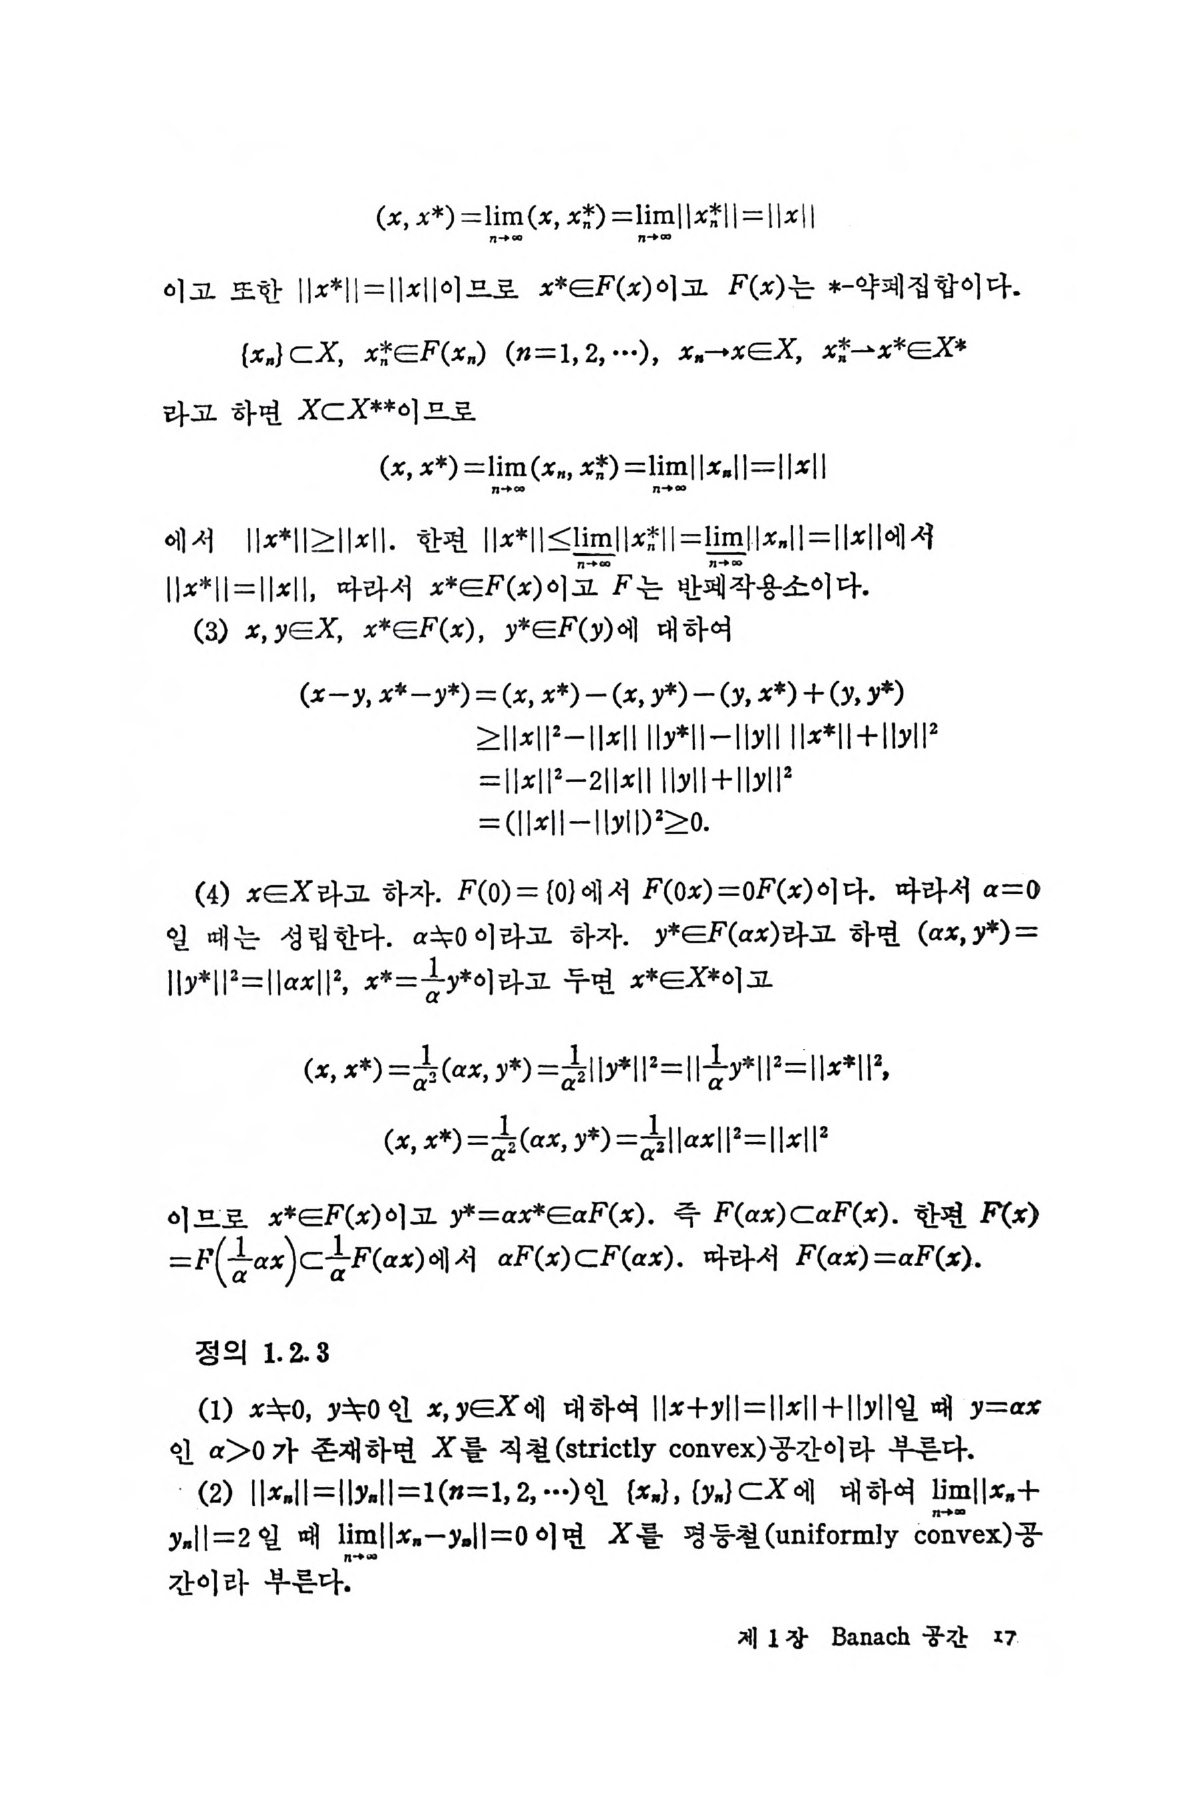 (x, x*)=lim(x, x*ₙ)=lim||x*ₙ||=||x||
n→∞ n→∞
이고 또한 ||x*||=||x||이므로 x*∈F(x)이고 F(x)는 *-약폐집합이다.
{xₙ}⊂X, x*ₙ∈F(xₙ) (n=1, 2, ⋯), xₙ→x∈X, x*ₙ⇀x*∈X*
라고 하면 X⊂X**이므로
(x, x*)=lim(xₙ, x*ₙ)=lim||xₙ||=||x||
n→∞ n→∞
에서 ||x*||≥||x||. 한편 ||x*||≤lim||x*ₙ||=lim||xₙ||=||x||에서
n→∞ n→∞
||x*||=||x||, 따라서 x*∈F(x)이고 F는 반폐작용소이다.
(3) x, y∈X, x*∈F(x), y*∈F(y)에 대하여
(x−y, x*−y*)=(x, x*)−(x, y*)−(y, x*)+(y, y*)
≥||x||²−||x|| ||y*||−||y|| ||x*||+||y||²
=||x||²−2||x|| ||y||+||y||²
=(||x||−||y||)²≥0.
(4) x∈X라고 하자. F(0)={0}에서 F(0x)=0F(x)이다. 따라서 α=0
일 때는 성립한다. α≒0이라고 하자. y*∈F(αx)라고 하면 (αx, y*)=
||y*||²=||αx||², x*=1/α y*이라고 두면 x*∈X*이고
(x, x*)=1/α²(αx, y*)=1/α²||y*||²=||1/α y*||²=||x*||²,
(x, x*)=1/α²(αx, y*)=1/α²||αx||²=||x||²
이므로 x*∈F(x)이고 y*=αx*∈αF(x). 즉 F(αx)⊂αF(x). 한편 F(x)
=F(1/α αx)⊂1/α F(αx)에서 αF(x)⊂F(αx). 따라서 F(αx)=αF(x).
정의 1.2.3
(1) x≒0, y≒0인 x, y∈X에 대하여 ||x+y||=||x||+||y||일 때 y=αx
인 α>0가 존재하면 X를 직철(strictly convex)공간이라 부른다.
(2) ||xₙ||=||yₙ||=1(n=1, 2, ⋯)인 {xₙ}, {yₙ}⊂X에 대하여 lim||xₙ+
n→∞
yₙ||=2일 때 lim||xₙ−yₙ||=0이면 X를 평등철(uniformly convex)공
n→∞
간이라 부른다.
제 1 장 Banach 공간 17